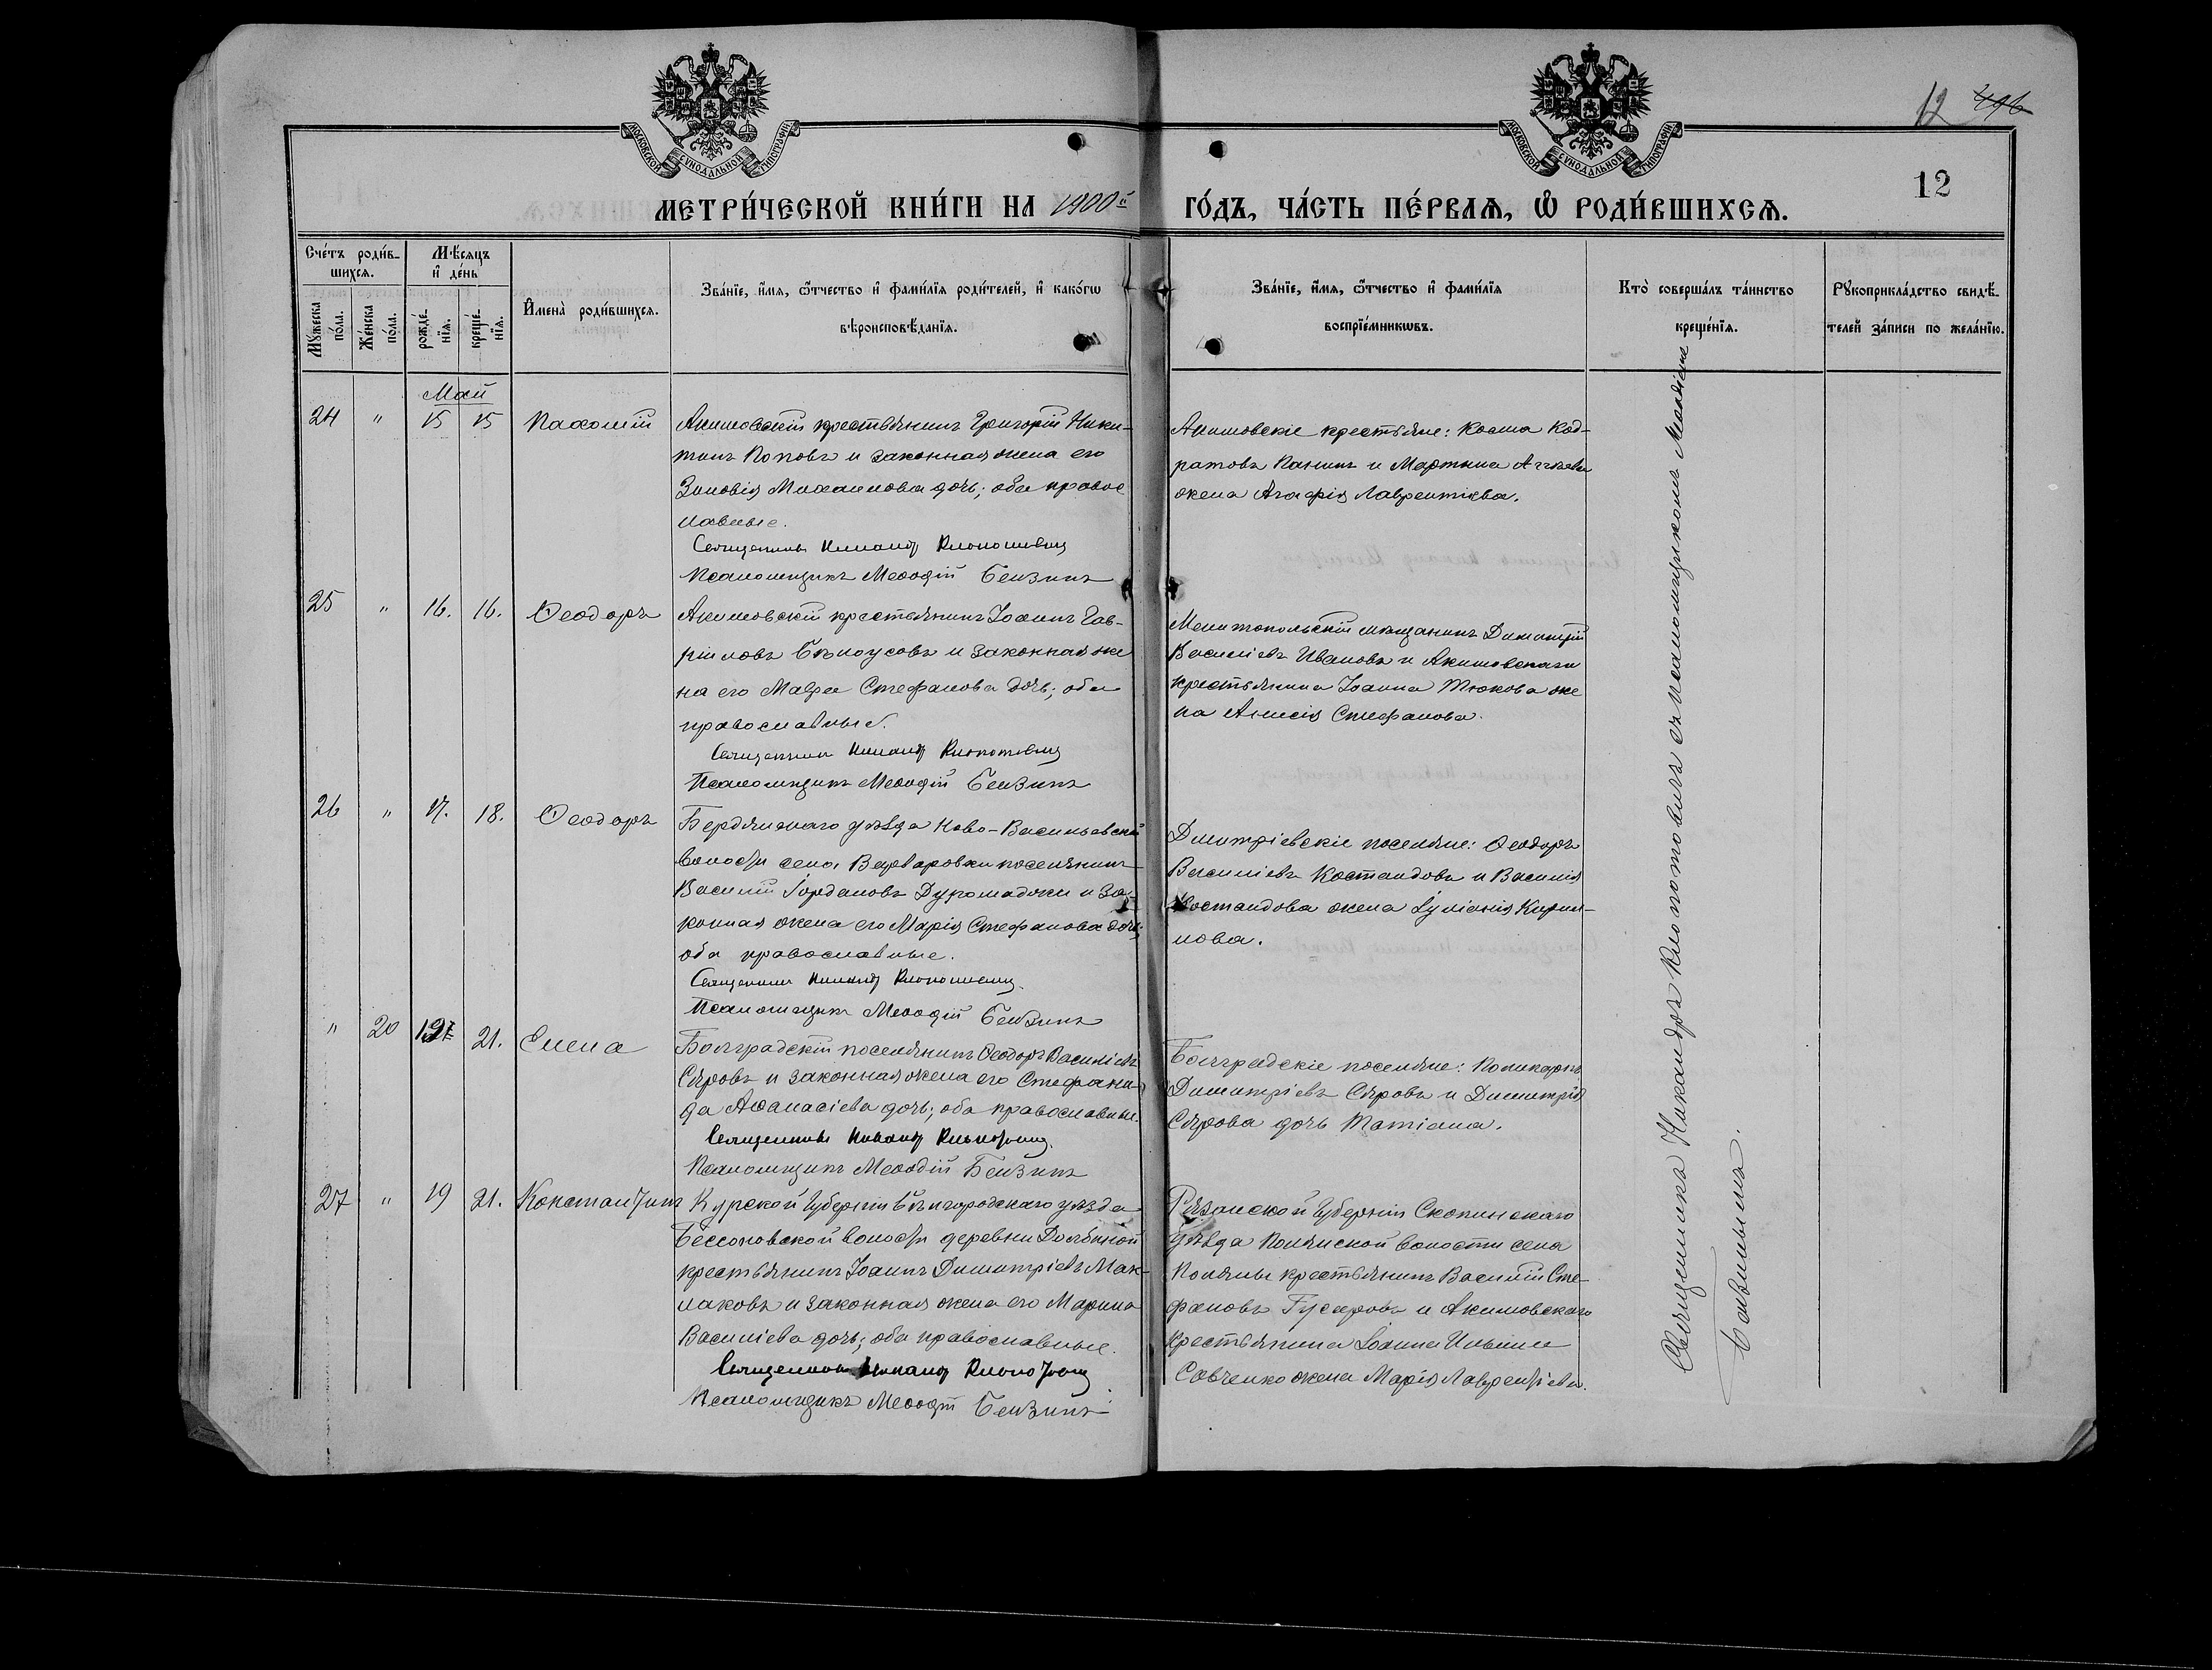 12 496
12
МОСКОВСКОЙ СѴНОДАЛЬНОЙ ТИПОГРАФІИ
МОСКОВСКОЙ СѴНОДАЛЬНОЙ ТИПОГРАФІИ
МЕТРИ́ЧЕСКОЙ КНИ́ГИ НА 1900й ГО́ДЪ, ЧА́СТЬ ПЕ́РВАѦ, Ѽ РОДИ́ВШИХСѦ.
Сче́тъ роди́в-
шихсѧ.
Мꙋ́жеска по́ла.
Же́нска по́ла.
Мѣ́сѧцъ
и҆ де́нь
рожде́-
нїѧ.
креще́-
нїѧ.
И҆мена̀ роди́вшихсѧ.
Зва́нїе, и҆́мѧ, ѻ҆́тчество и҆ фами́лїѧ роди́телей, и҆ како́гѡ
вѣроисповѣ́данїѧ.
Зва́нїе, и҆́мѧ, ѻ҆́тчество и҆ фами́лїѧ
воспрїе́мникѡвъ.
Кто̀ соверша́лъ та́инство
креще́нїѧ.
Рꙋкоприкла́дство свидѣ́-
телей за́писи по жела́нїю.
Май
24 " 15 15 Пахомій
Акимовскій крестьянинъ Григорій Ники-
тинъ Поповъ и законная жена его
Зиновія Михаилова дочь; оба правос
лавные.
Священникъ Никандр Клопотович
Псаломщикъ Меѳодій Бензинъ
Акимовскіе крестьяне: Косма Код-
ратовъ Панинъ и Мартина
жена Агафія Лаврентіева.
25 " 16. 16. Ѳеодоръ
Акимовскій крестьянинъ Іоаннъ Гав-
ріиловъ Бѣлоусовъ и законная же
на его Мавра Стефанова дочь; оба
православные.
Священник Никандр Клопотович
Псаломщикъ Меѳодій Бензинъ
Мелитопольскій мѣщанинъ Димитрій
Василіевъ Ивановъ и Акимовскаго
крестьянина Іоанна Тюкова же
на Анисія Стефанова.
26 " 17. 18. Ѳеодоръ
Бердянскаго уѣзда Ново-Васильевской
волости села Варваровки поселянинъ
Василій Іордановъ и за-
конная жена его Марія Стефанова дочь;
оба православные.
Священник Никандр Клопотович
Псаломщикъ Меѳодій Бензинъ
Димитріевскіе поселяне: Ѳеодоръ
Василіевъ Костандовъ и Василія
Костандова жена Іуліанія Кирил-
лова.
" 20 19 21. Елена
Болградскій поселянинъ Ѳеодоръ Василіевъ
Сѣровъ и законная жена его Стефани-
да Аѳанасіева дочь; оба православные.
Священникъ Никандр Клопотович
Псаломщикъ Меѳодій Бензинъ
Болградскіе поселяне: Поликарпъ
Димитріевъ Сѣровъ и Димитрія
Сѣрова дочь Татіана.
27 " 19 21. Константинъ
Курской губерніи Бѣлгородскаго уѣзда
Бессоновской волости деревни Долбиной
крестьянинъ Іоаннъ Димитріевъ Мак-
лаковъ и законная жена его Марина
Василіева дочь; оба православные.
Священникъ Никандр Клопотович
Псаломщикъ Меѳодій Бензинъ
Рязанской губерніи Скопинскаго
уѣзда Полянской волости села
Поляны крестьянинъ Василій Сте-
фановъ Гусаровъ и Акимовскаго
крестьянина Іоанна Ильина
Савченко жена Марія Лаврентіева.
Священникъ Никандръ Клопотовичъ съ псаломщикомъ Меѳодіемъ
Бензинымъ.